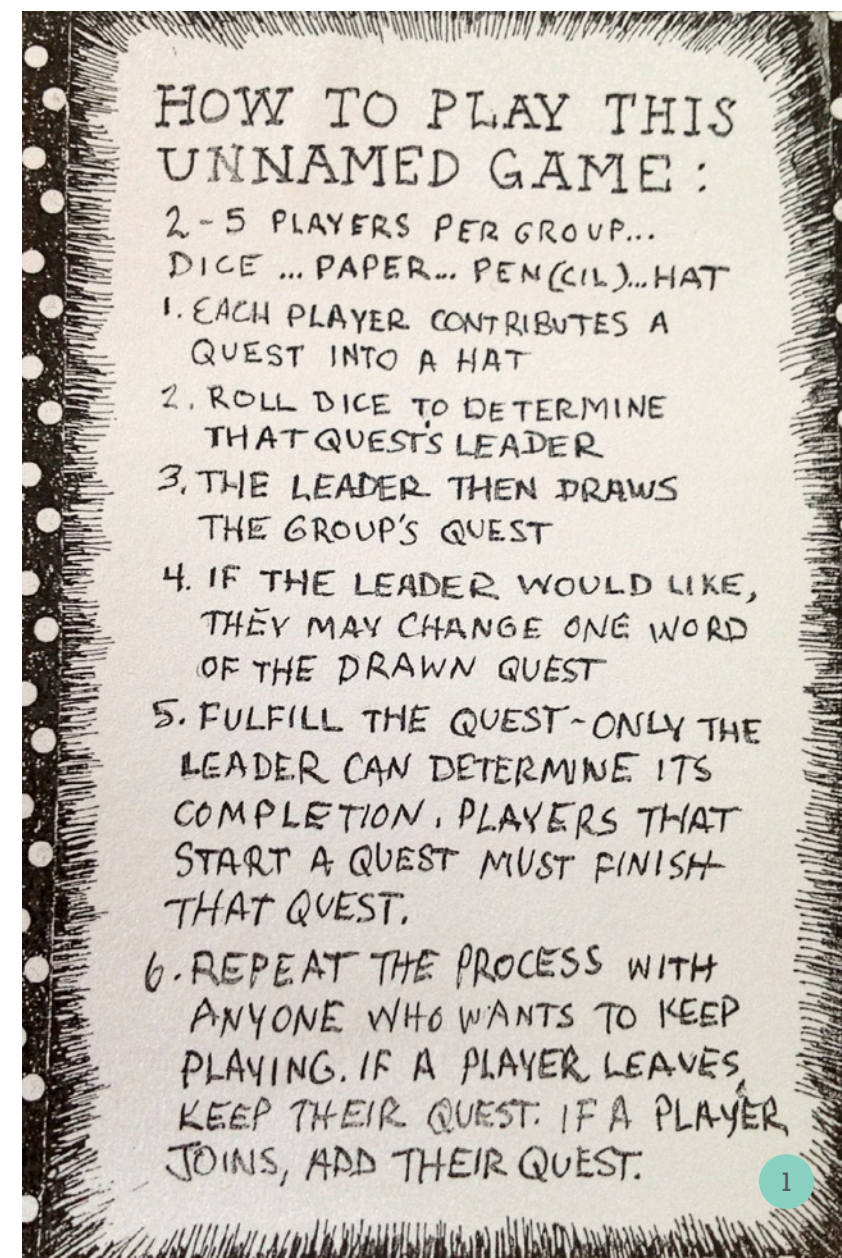 HOW TO PLAY THIS
UNNAMED GAME:
2-5 PLAYERS PER GROUP...
DICE ... PAPER... PEN(CIL)...HAT
1. EACH PLAYER CONTRIBUTES A
QUEST INTO A HAT
2. ROLL DICE TO DETERMINE
THAT QUEST'S LEADER
3. THE LEADER THEN DRAWS
THE GROUP'S QUEST
4. IF THE LEADER WOULD LIKE,
THEY MAY CHANGE ONE WORD
OF THE DRAWN QUEST
5. FULFILL THE QUEST-ONLY THE
LEADER CAN DETERMINE ITS
COMPLETION. PLAYERS THAT
START A QUEST MUST FINISH
THAT QUEST.
6. REPEAT THE PROCESS WITH
ANYONE WHO WANTS TO KEEP
PLAYING. IF A PLAYER LEAVES,
KEEP THEIR QUEST. IF A PLAYER
JOINS, ADD THEIR QUEST.
1